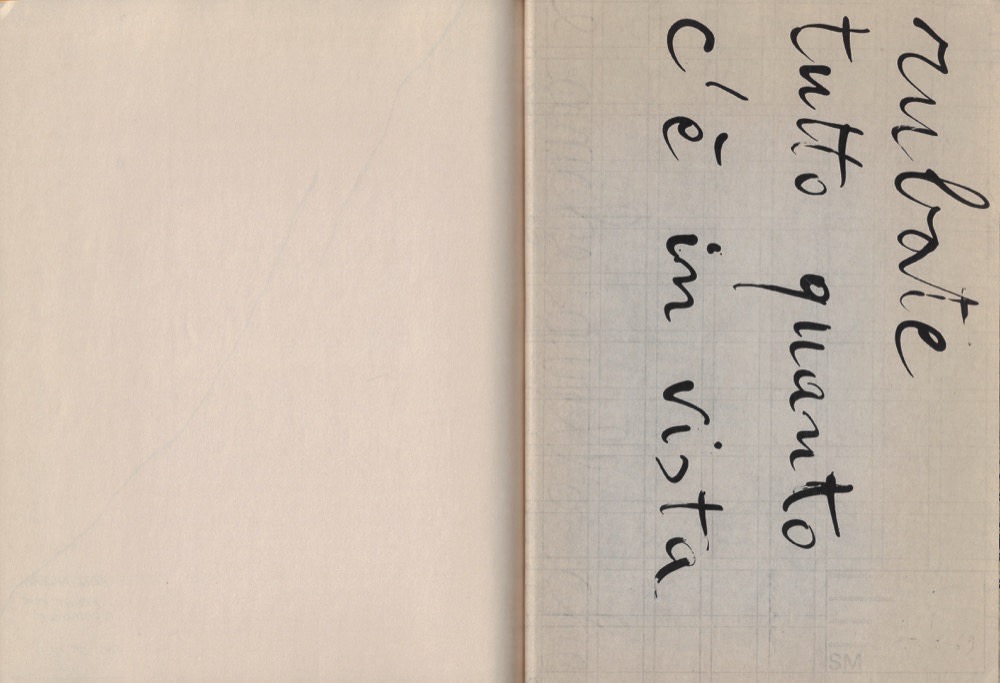 rubate
tutto quanto
c'è in vista
SM